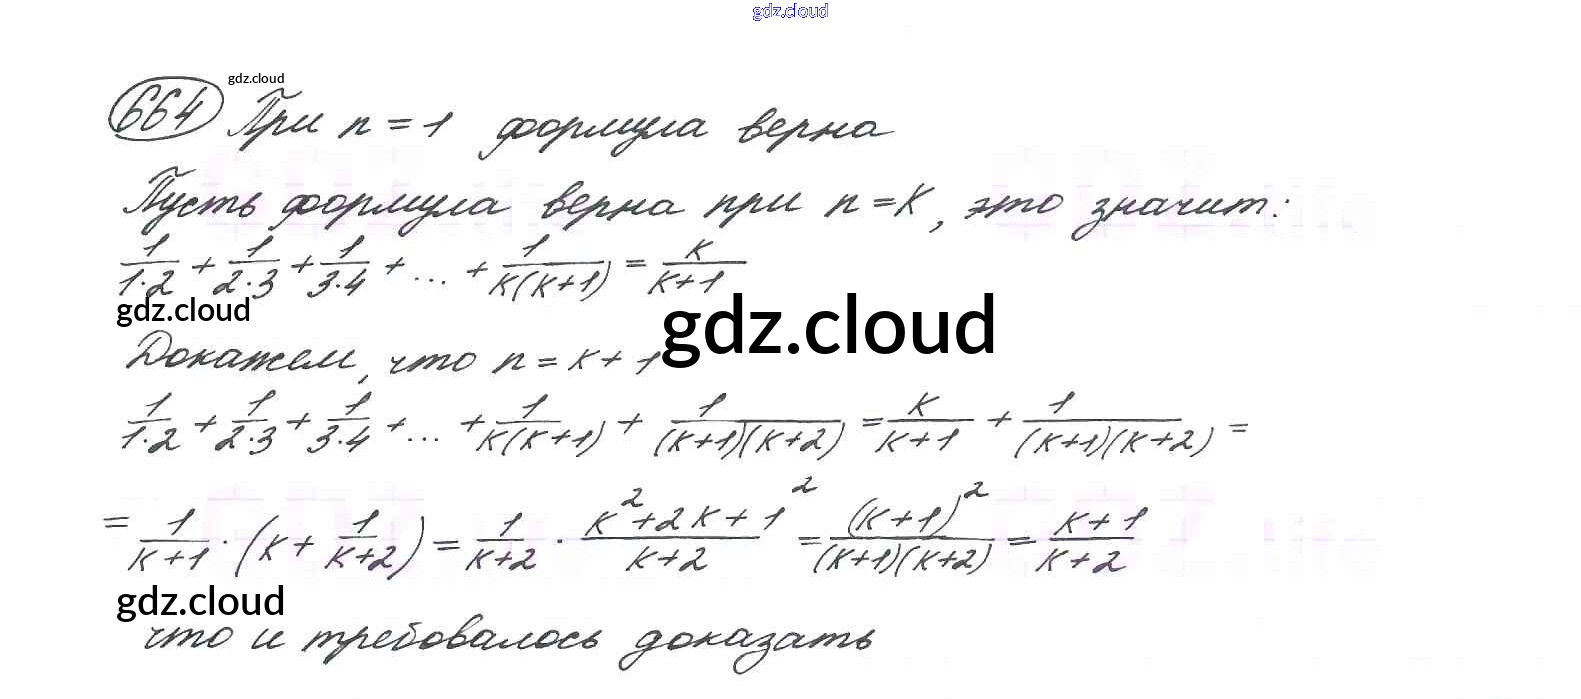 gdz.cloud
gdz.cloud
664 При n = 1 формула верна
Пусть формула верна при n = K, это значит:
1/(1·2) + 1/(2·3) + 1/(3·4) + ... + 1/(K(K+1)) = K/(K+1)
gdz.cloud
gdz.cloud
Докажем, что n = K + 1
1/(1·2) + 1/(2·3) + 1/(3·4) + ... + 1/(K(K+1)) + 1/((K+1)(K+2)) = K/(K+1) + 1/((K+1)(K+2)) =
= 1/(K+1) · (K + 1/(K+2)) = 1/(K+2) · (K² + 2K + 1²)/(K+2) = (K+1)²/((K+1)(K+2)) = (K+1)/(K+2)
gdz.cloud
что и требовалось доказать